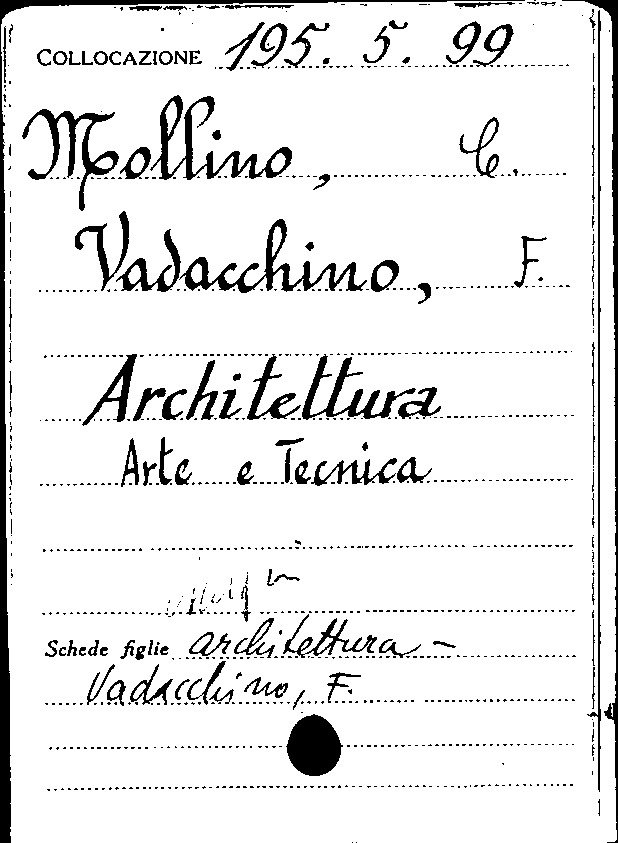 COLLOCAZIONE 195. 5. 99
Mollino, C.
Vadacchino, F.
Architettura
Arte e Tecnica
Schede figlie architettura -
Vadacchino, F.